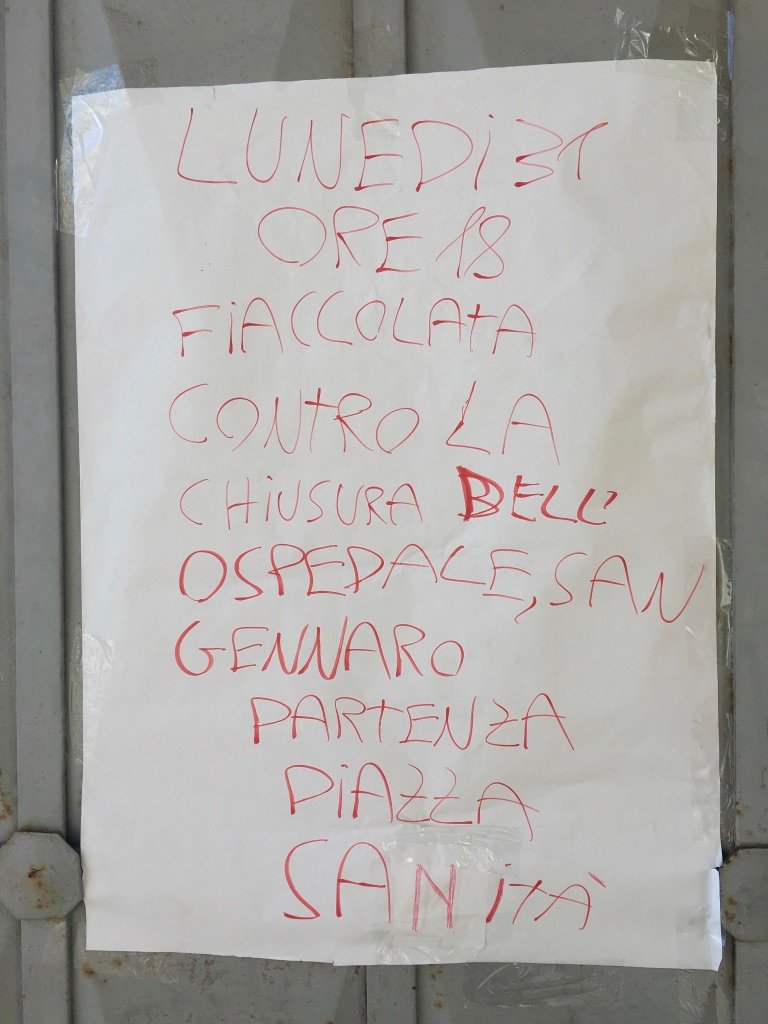 LUNEDI 31
ORE 18
FIACCOLATA
CONTRO LA
CHIUSURA DELL'
OSPEDALE, SAN
GENNARO
PARTENZA
PIAZZA
SANITÀ